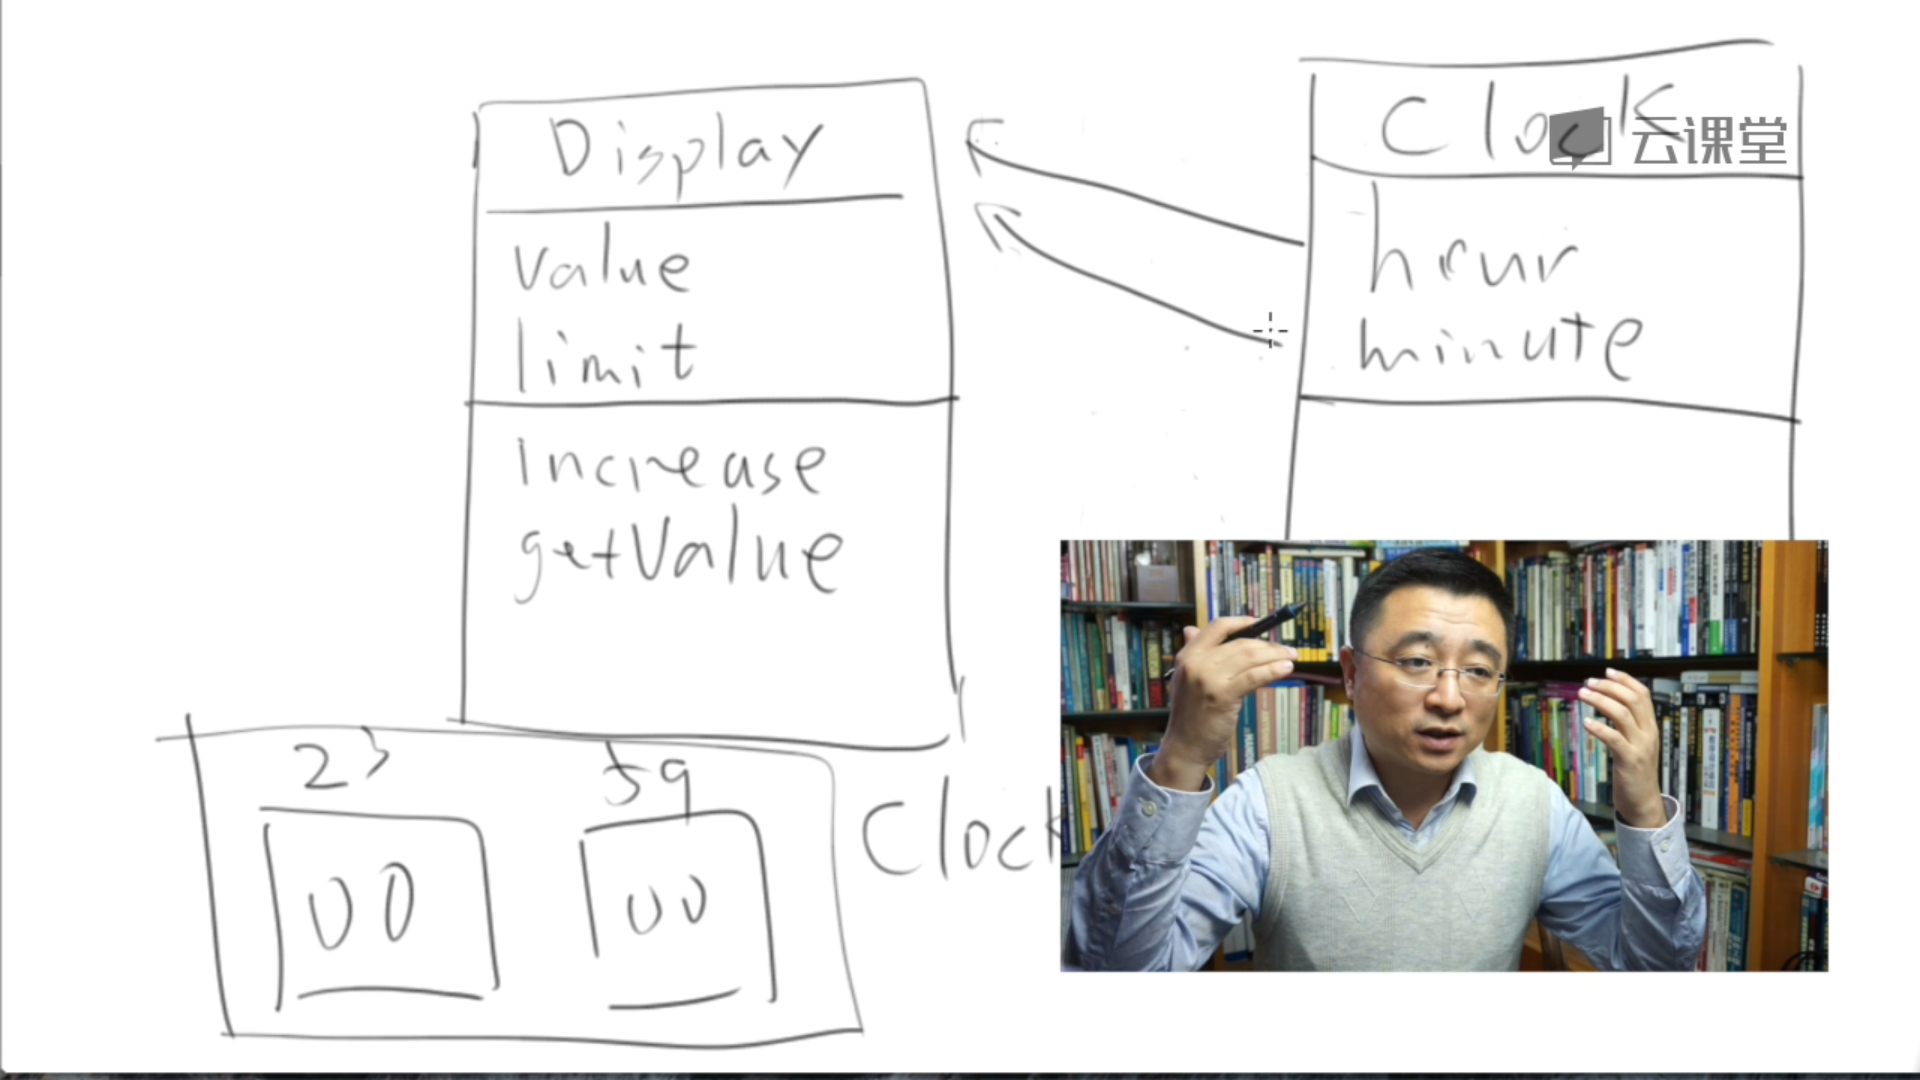 Display
value
limit
increase
getValue
Clock
云课堂
hour
minute
23
59
00
00
Clock